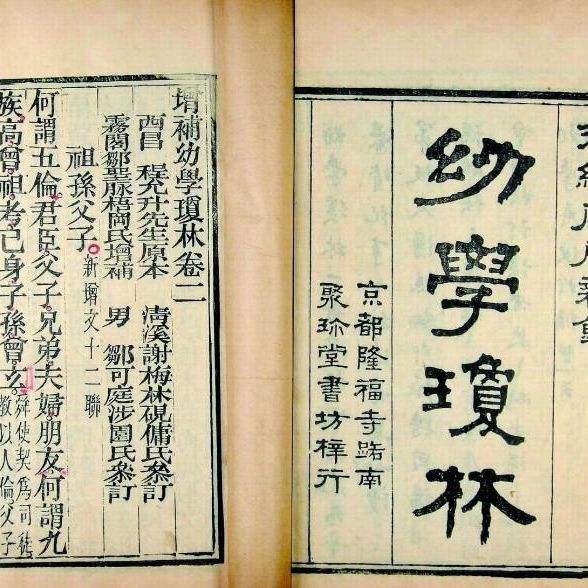 幼學瓊林
京都隆福寺路南
聚珎堂書坊梓行
增補幼學瓊林卷二
西昌 程允升先生原本 清溪謝梅林硯傭氏叅訂
霧閣鄒聖脈梧岡氏增補 男 鄒可庭涉園氏叅訂
祖孫父子 新增文十二聯
何謂五倫君臣父子兄弟夫婦朋友何謂九
族高曾祖考己身子孫曾玄 舜使契爲司徒
教以人倫父子